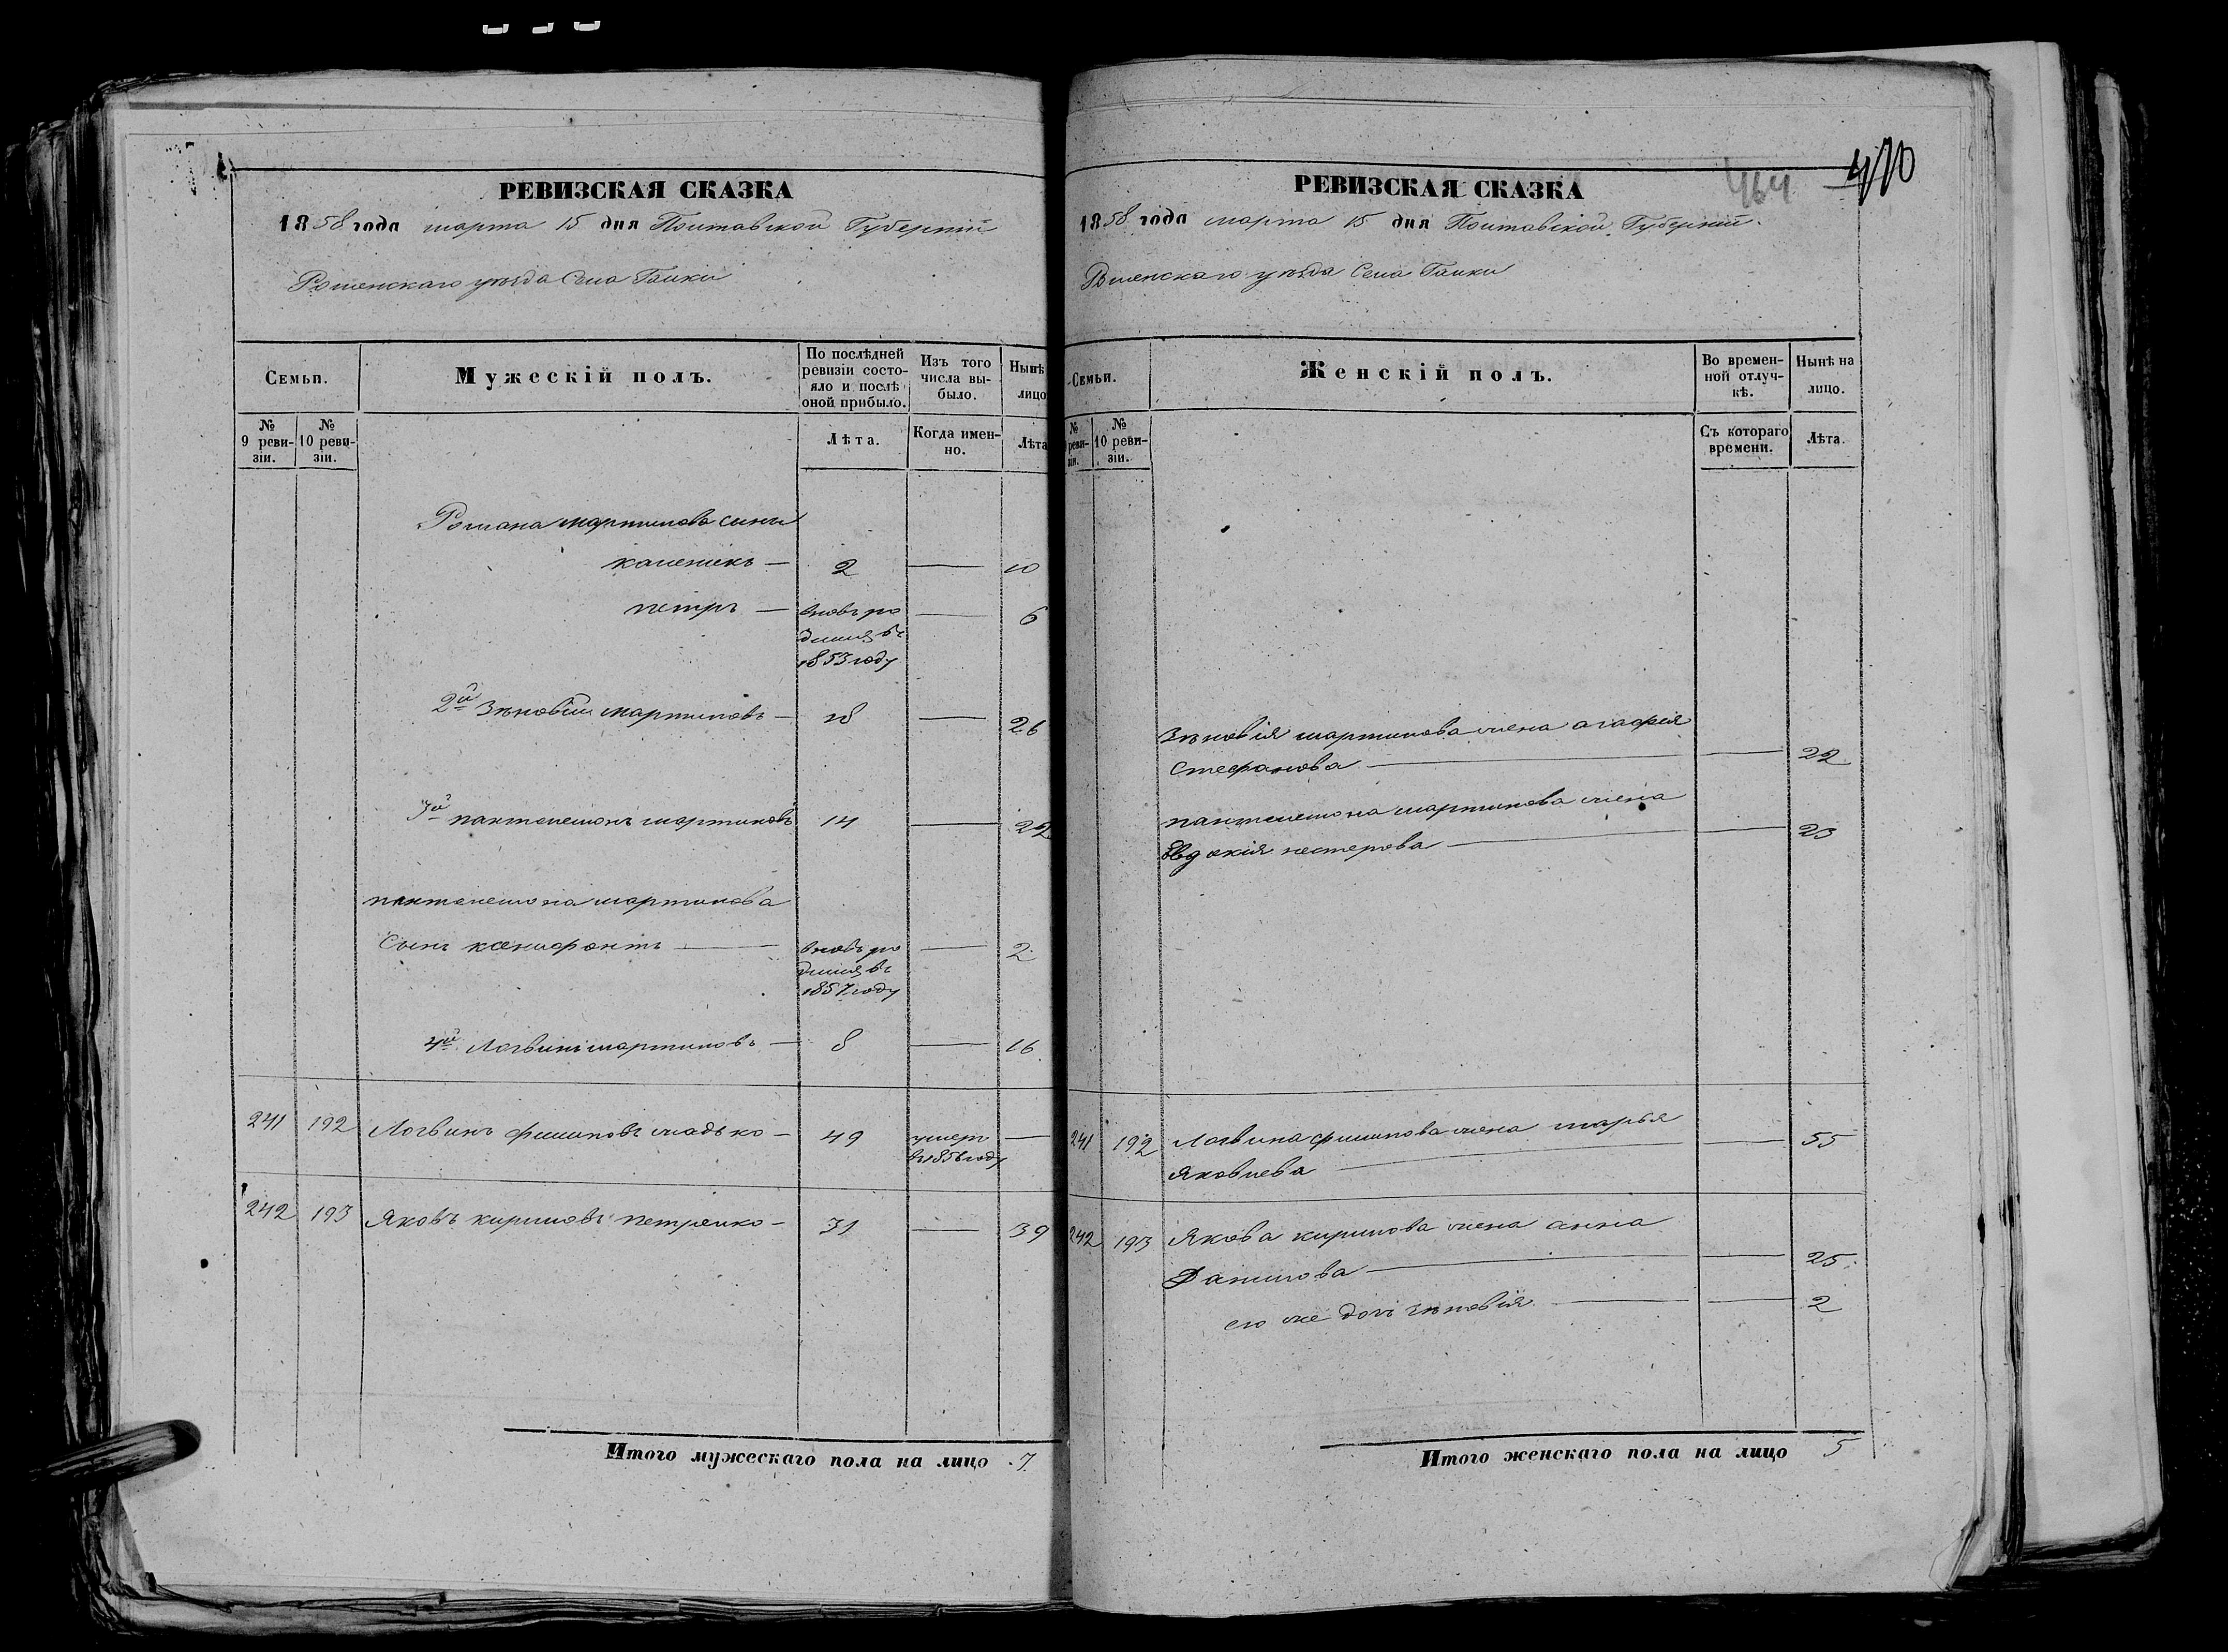 РЕВИЗСКАЯ СКАЗКА
1858 года марта 15 дня Полтавской Губерніи
Роменскаго уѣзда Села Галки
Семьи.
Мужескій полъ.
По послѣдней ревизіи состояло и послѣ оной прибыло.
Изъ того числа выбыло.
Нынѣ лицо
№ 9 ревизіи.
№ 10 ревизіи.
Лѣта.
Когда именно.
Лѣта
Романа мартинова сины
каленикъ — 2 — 10
петръ — вновь ро — 6
дился въ
1853 году
2й Зѣновій мартиновъ — 18 — 26
3й пантелемонъ мартиновъ 14 — 22
пантелемона мартинова
Сынъ ксенофонтъ — вновь ро — 2
дился въ
1857 году
4й Логвинъ мартиновъ — 8 — 16
241 192 Логвинъ филиповъ — 49 умеръ —
въ 1856 году
242 193 Яковъ кириловъ петренко — 31 — 39
Итого мужескаго пола на лицо 7
РЕВИЗСКАЯ СКАЗКА
464 470
1858 года марта 15 дня Полтавской Губерніи
Роменскаго уѣзда Села Галки
Семьи.
Женскій полъ.
Во временной отлучкѣ.
Нынѣ на лицо.
№ реви-зіи.
№ 10 ревизіи.
Съ котораго времени.
Лѣта.
Зѣновія мартинова жена агафія
Стефанова — — 22
пантелемона мартинова жена
Евдокія нестерова — — 23
241 192 Логвина филипова жена марья — 55
Яковлева —
242 193 Якова кирилова жена анна
Данилова — — 25
его же дочь зѣновія — — 2
Итого женскаго пола на лицо 5